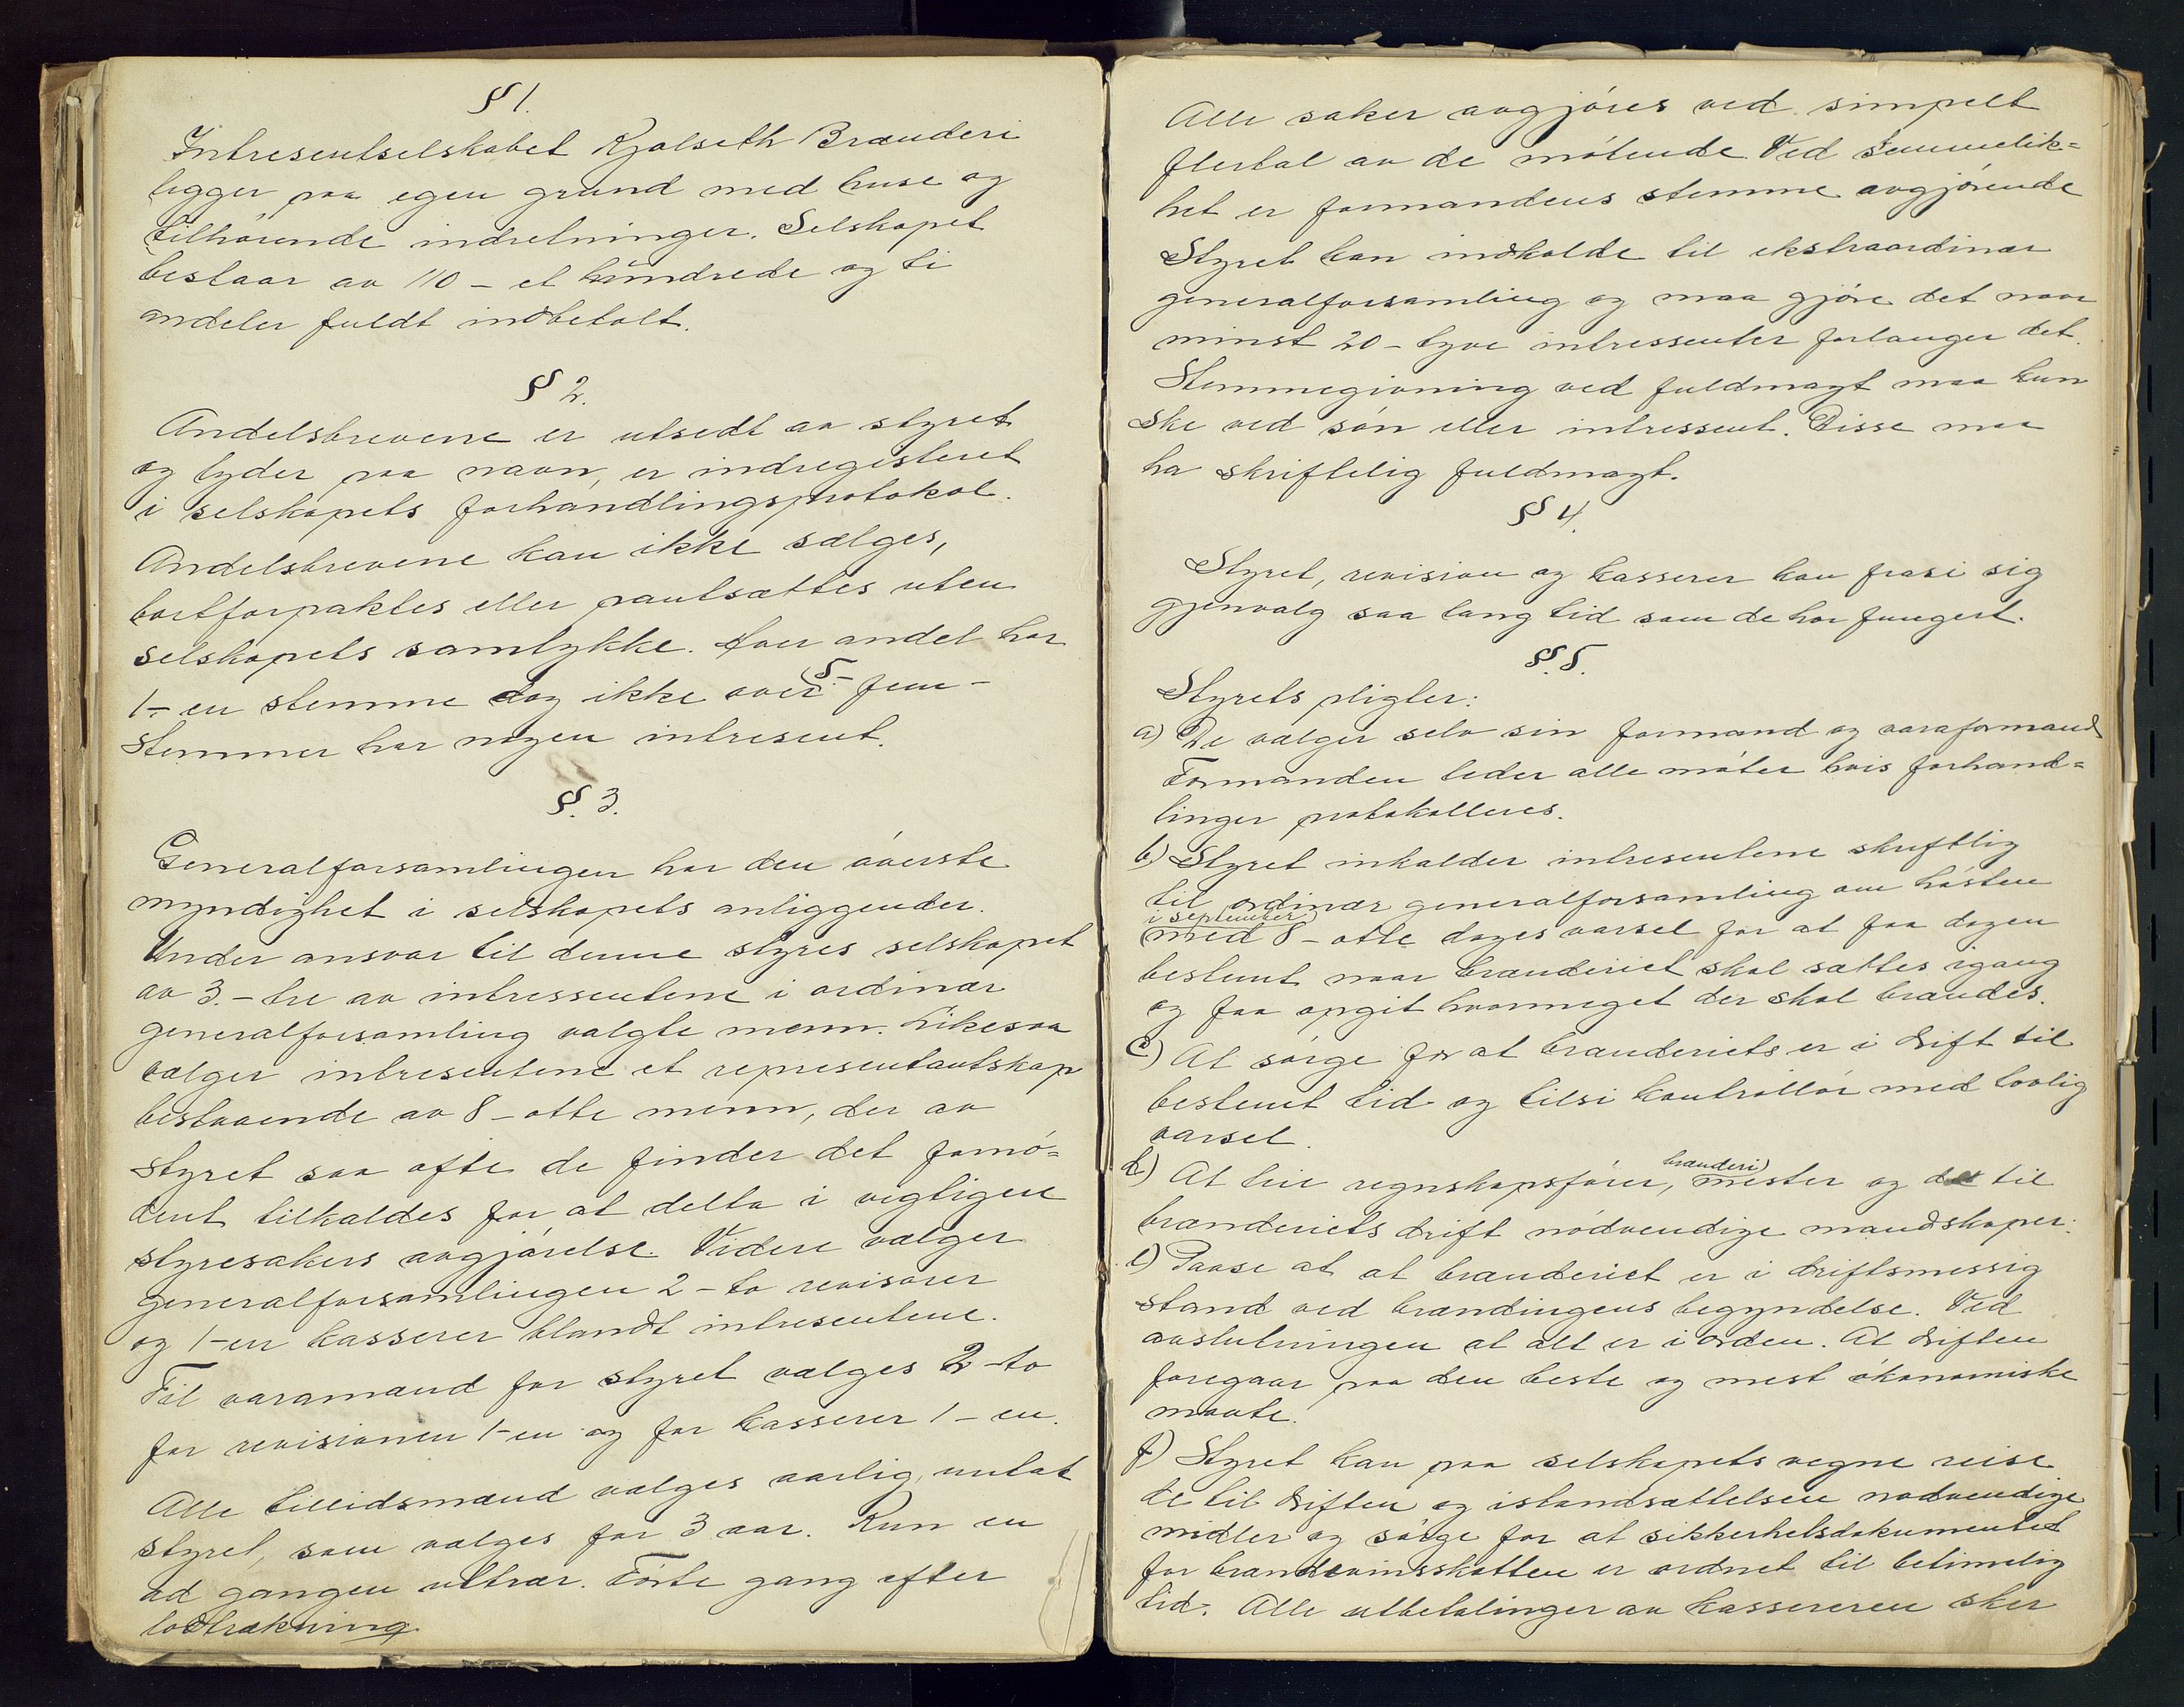 § 1.
Intresentselskabet Kjølseth Brænderi
ligger paa egen grund med huse og
tilhørende indretninger. Selskapet
bestaar av 110 – et hundrede og ti
andeler fuldt indbetalt.
§ 2.
Andelsbrevene er utsedt av styret
og lyder paa navn, er indregisteret
i selskapets forhandlingsprotokol.
Andelsbrevene kan ikke sælges,
bortforpaktes eller pantsættes uten
selskapets samtykke. Hver andel har
1 – en stemme dog ikke over 5 – fem –
stemmer har nogen intresent.
§. 3.
Generalforsamlingen har den óverste
myndighet i selskapets anliggender.
Under ansvar til denne styres selskapet
av 3. – tre av intressentene i ordinær
generalforsamling valgte menn. Likesaa
vælger intresentene et representantskap
bestaaende av 8 – otte menn, der av
styret saa ofte de finder det fornó=
dent tilkaldes for at delta i vigtigere
styresakers avgjórelse. Videre vælger
generalforsamlingen 2 – to revisorer
og 1 – en kasserer blandt intresentene.
Til varamænd for styret vælges 2 – to
for revisionen 1 – en og for kasserer 1 – en.
Alle tillidsmænd vælges aarlig, untat
styret, som vælges for 3 aar. Kun en
ad gangen uttrær. Fórte gang efter
lodtrækning.
Alle saker avgjóres ved simpelt
flertal av de mótende. Ved stemmelik=
het er formandens stemme avgjórende
Styret kan indkalde til ekstraordinær
generalforsamling og maa gjóre det naar
minst 20 – tyve intressenter forlanger det.
Stemmegivning ved fuldmagt maa kun
ske ved són eller intressent. Disse maa
ha skriftelig fuldmagt.
§ 4.
Styret, revision og kasserer kan frasi sig
gjenvalg saa lang tid som de har fungert.
§. 5.
Styrets pligter:
a) De vælger selv sin formand og varaformand
Formanden leder alle móter hvis forhand=
linger protokolleres.
b) Styret inkalder intresentene skriftlig
til ordinær generalforsamling om hósten
i september
med 8 – otte dages varsel for at faa dagen
bestemt naar brænderiet skal sættes igang
og faa opgit hvormeget der skal brændes.
c) At sórge for at brænderiets er i drift til
bestemt tid og tilsi kontrollór med lovlig
varsel.
d) At leie regnskapsfórer, brænderimester og det til
brænderiets drift nódvendige mandskaper.
e) Paase at at brænderiet er i driftsmessig
stand ved brændingens begyndelse. Ved
avslutningen at alt er i orden. At driften
foregaar paa den beste og mest ókonomiske
maate.
f) Styret kan paa selskapets vegne reise
de til driften og istandsættelsen nødvendige
midler og sórge for at sikkerhetsdokumentet
for brændevinsskatten er ordnet til betimelig
tid. Alle utbetalinger av kassereren sker